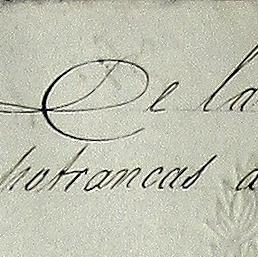 De la
potrancas a